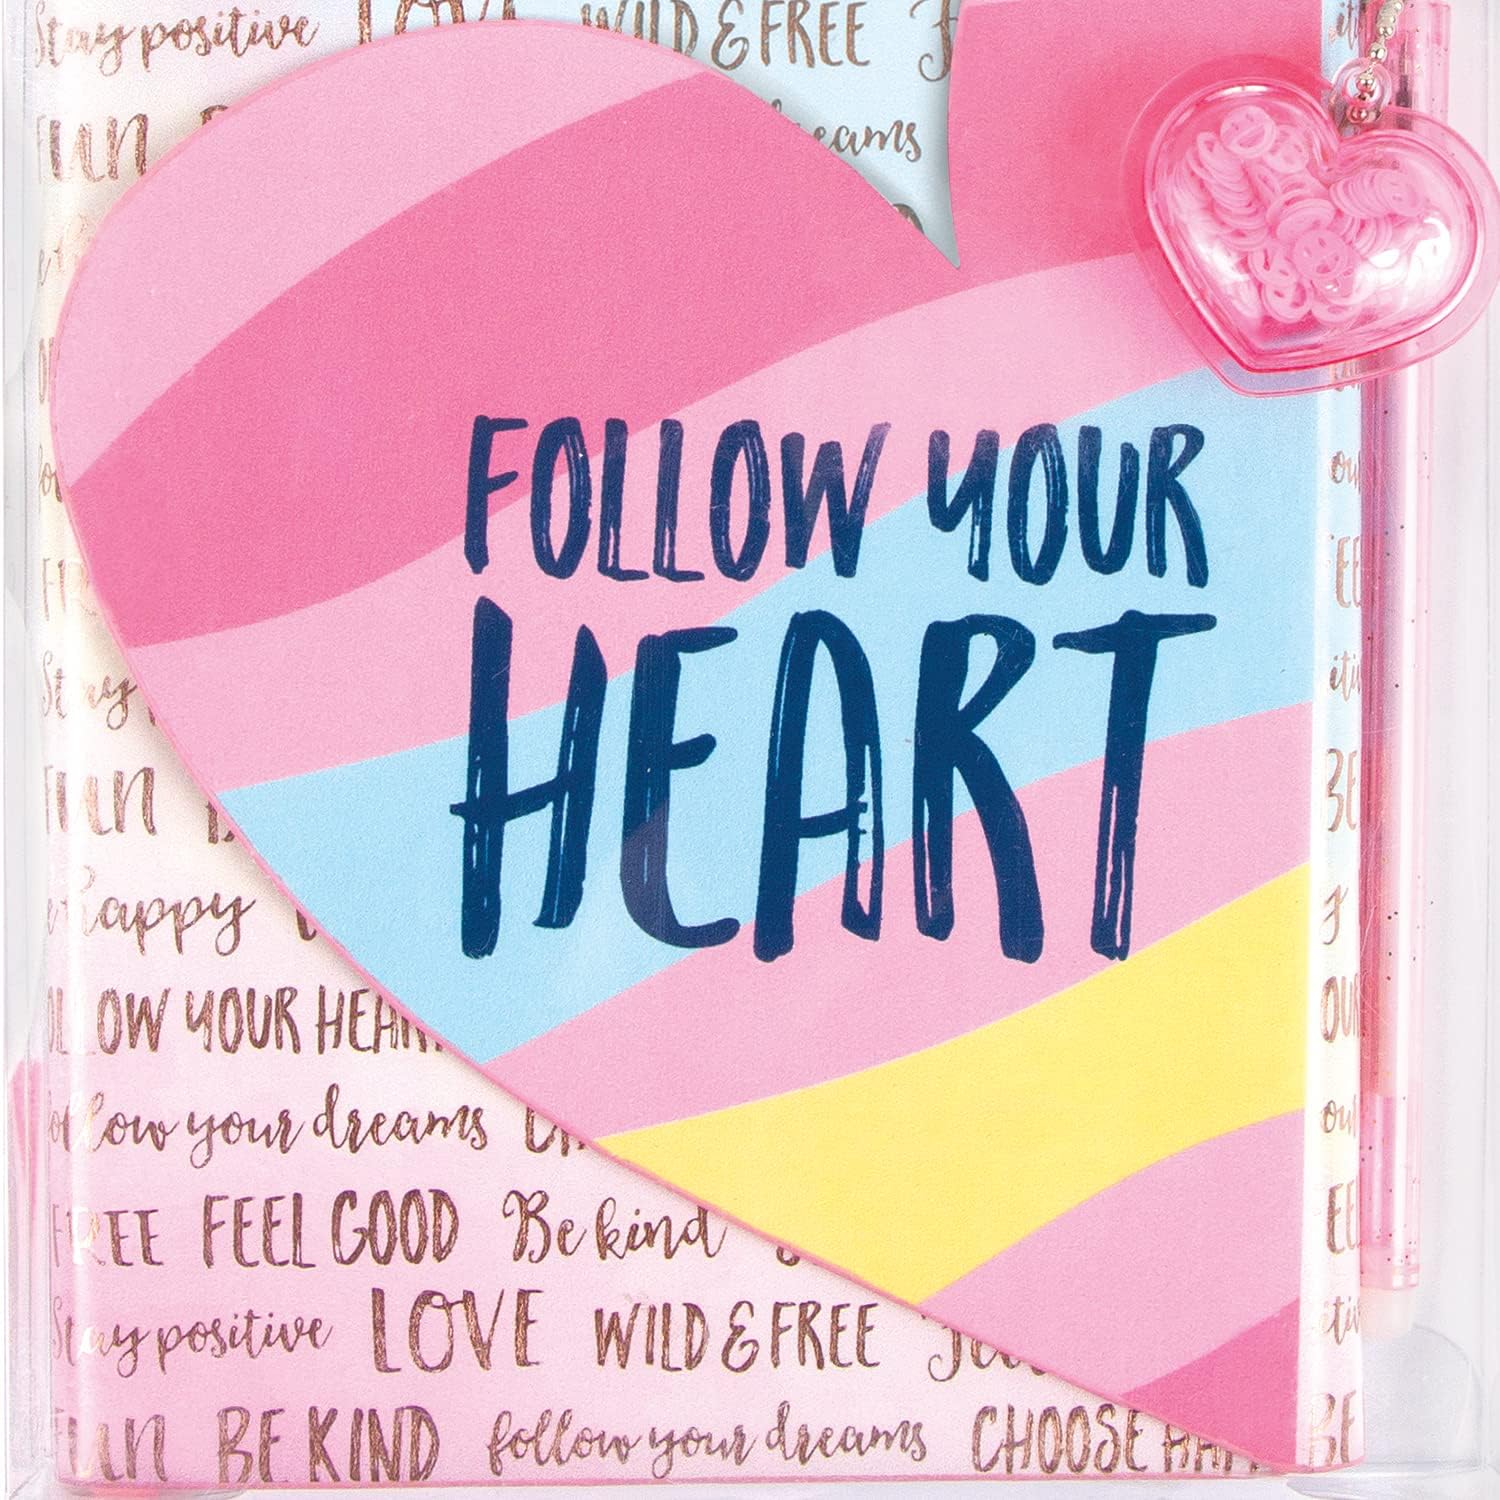 Stay positive LOVE WILD & FREE
FUN dreams
FOLLOW YOUR
HEART
Stay
FUN
happy
FOLLOW YOUR HEART
follow your dreams
FREE FEEL GOOD Be kind
Stay positive LOVE WILD & FREE
FUN BE KIND follow your dreams CHOOSE BE